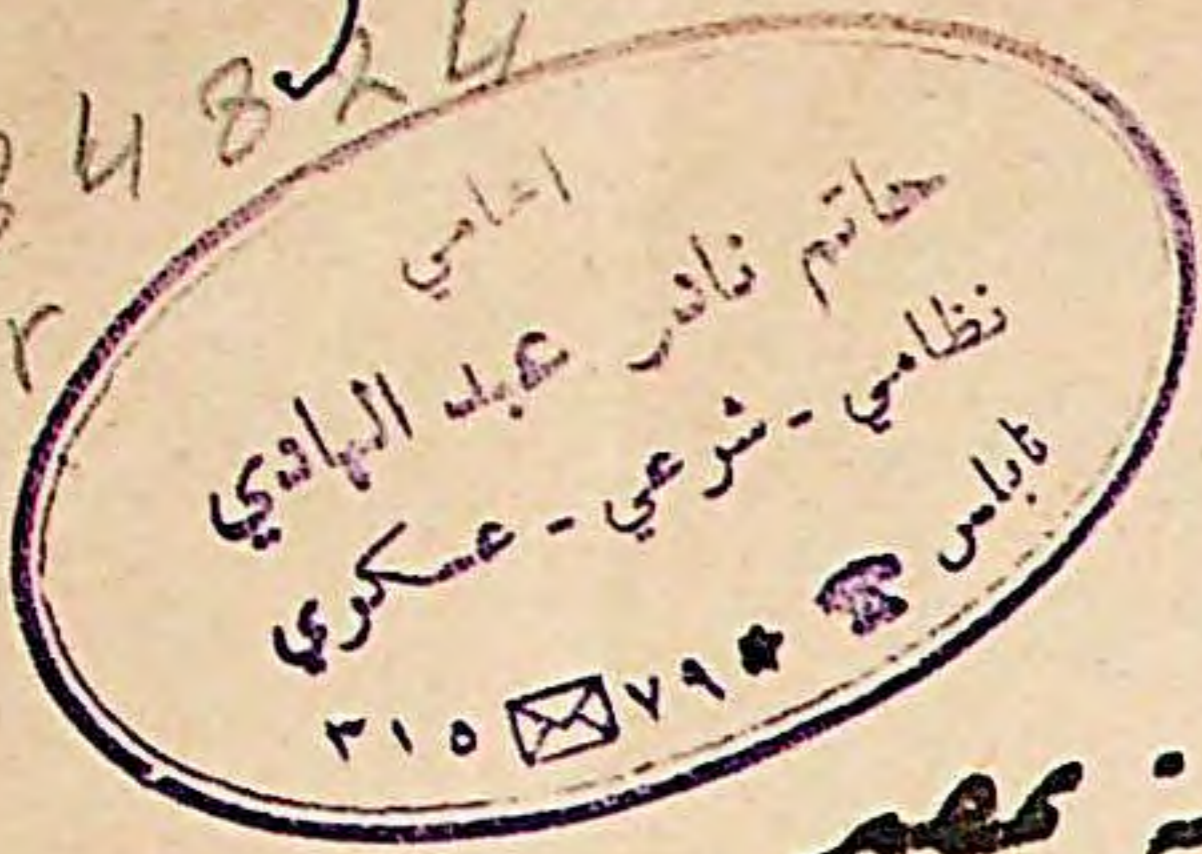 4824
المحامي
حاتم نادر عبد الهادي
نظامي - شرعي - عسكري
نابلس ☎ ★ ٧٩ ✉ ٣١٥